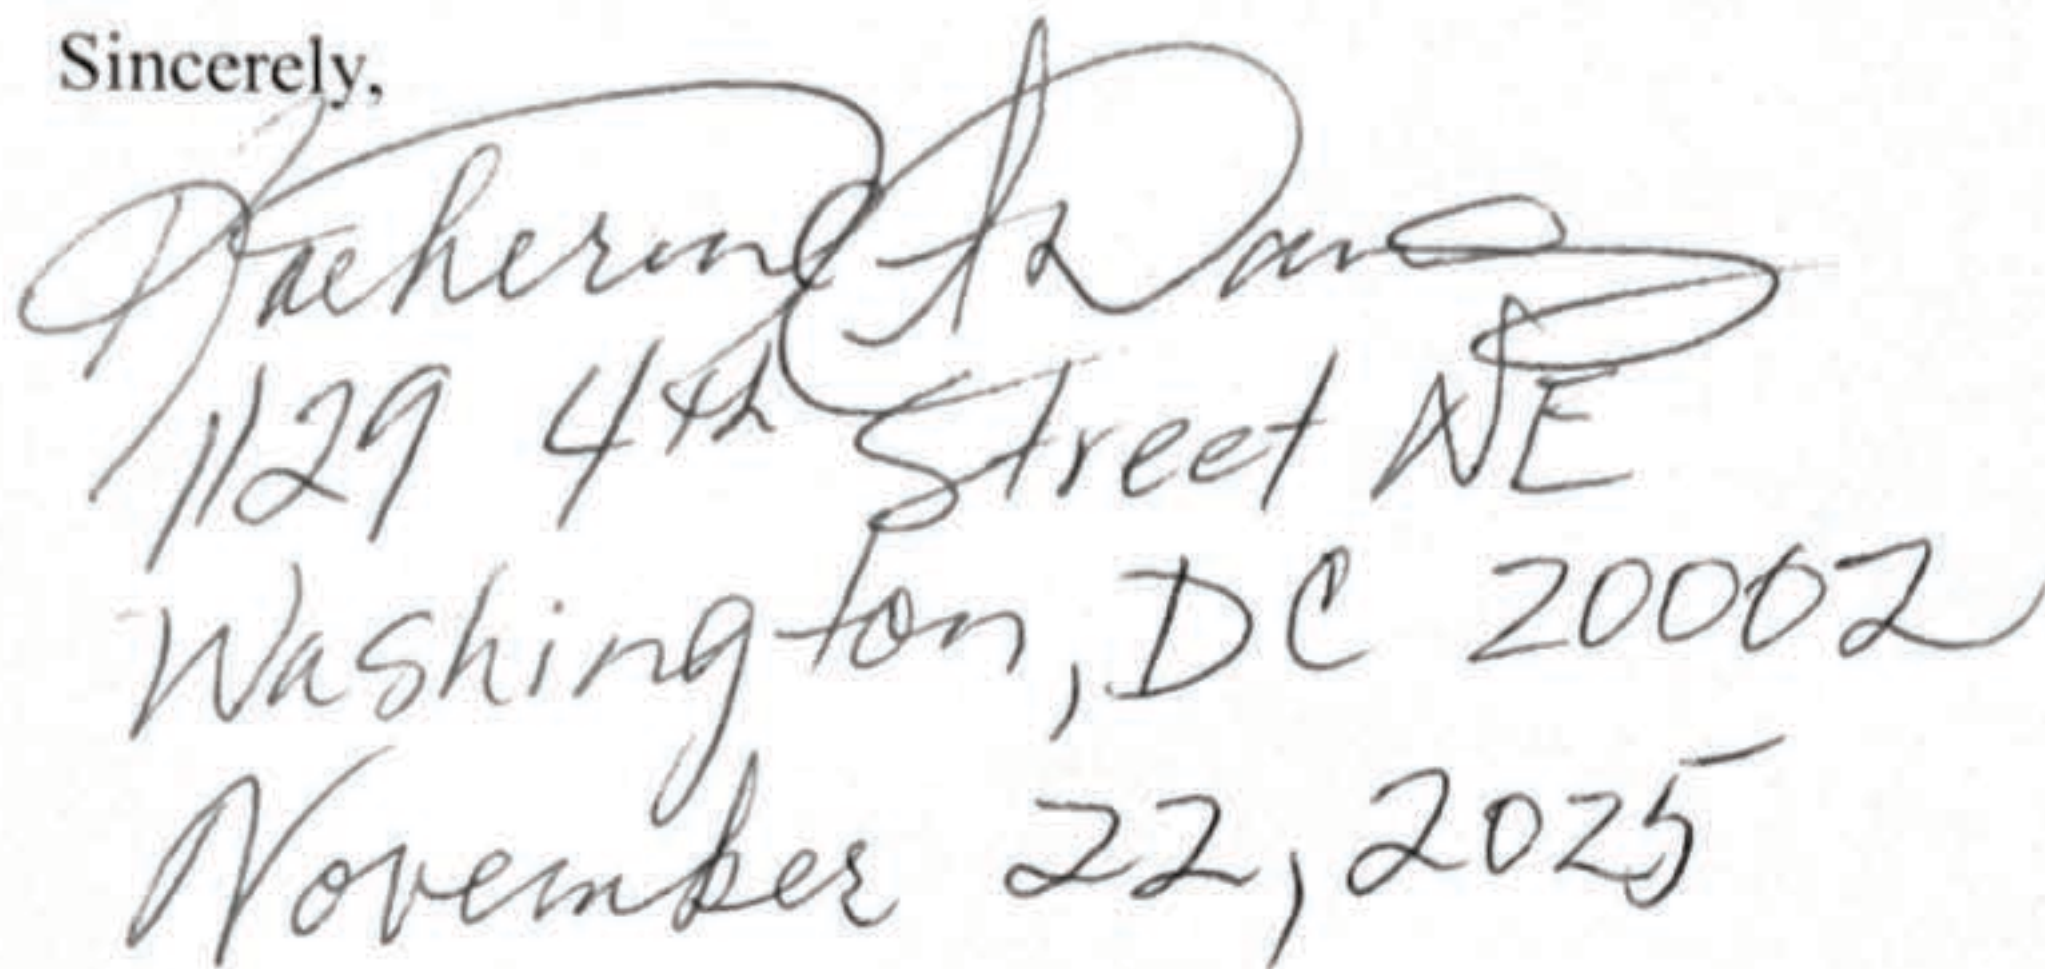 Sincerely,
Katherine
1129 4th Street NE
Washington, DC 20002
November 22, 2025